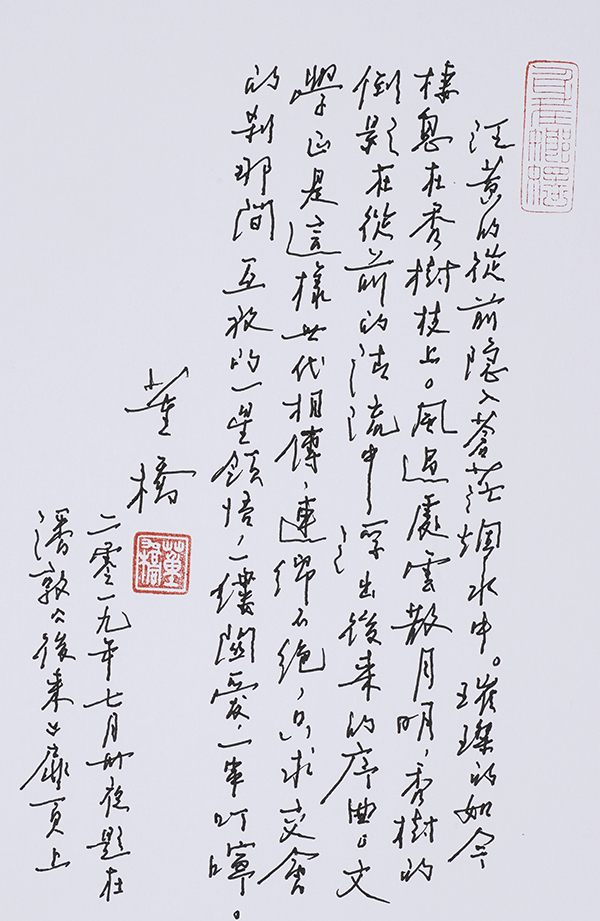 泛黄的從前隐入蒼茫烟水中。璀璨的如今
棲息在秀樹枝上。風過處雲散月明，秀樹的
倒影在從前的清流中浮出後来的序曲。文
學正是這樣世代相傳，連綿不绝，只求交會
的刹那間互放的一星領悟，一縷關愛，一串叮嚀。
董橋
二零一九年七月卅夜題在
潘敦《後来》扉頁上
董橋